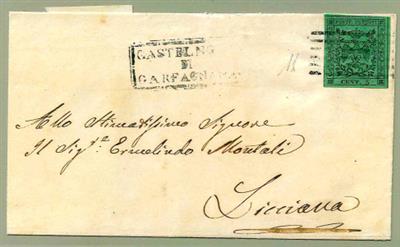 CASTELNO
DI
GARFAGNANA
POSTE ESTENSI
CENT. 5
Allo Stimatissimo Signore
Il Sig.re Ermelindo Montali
Licciana